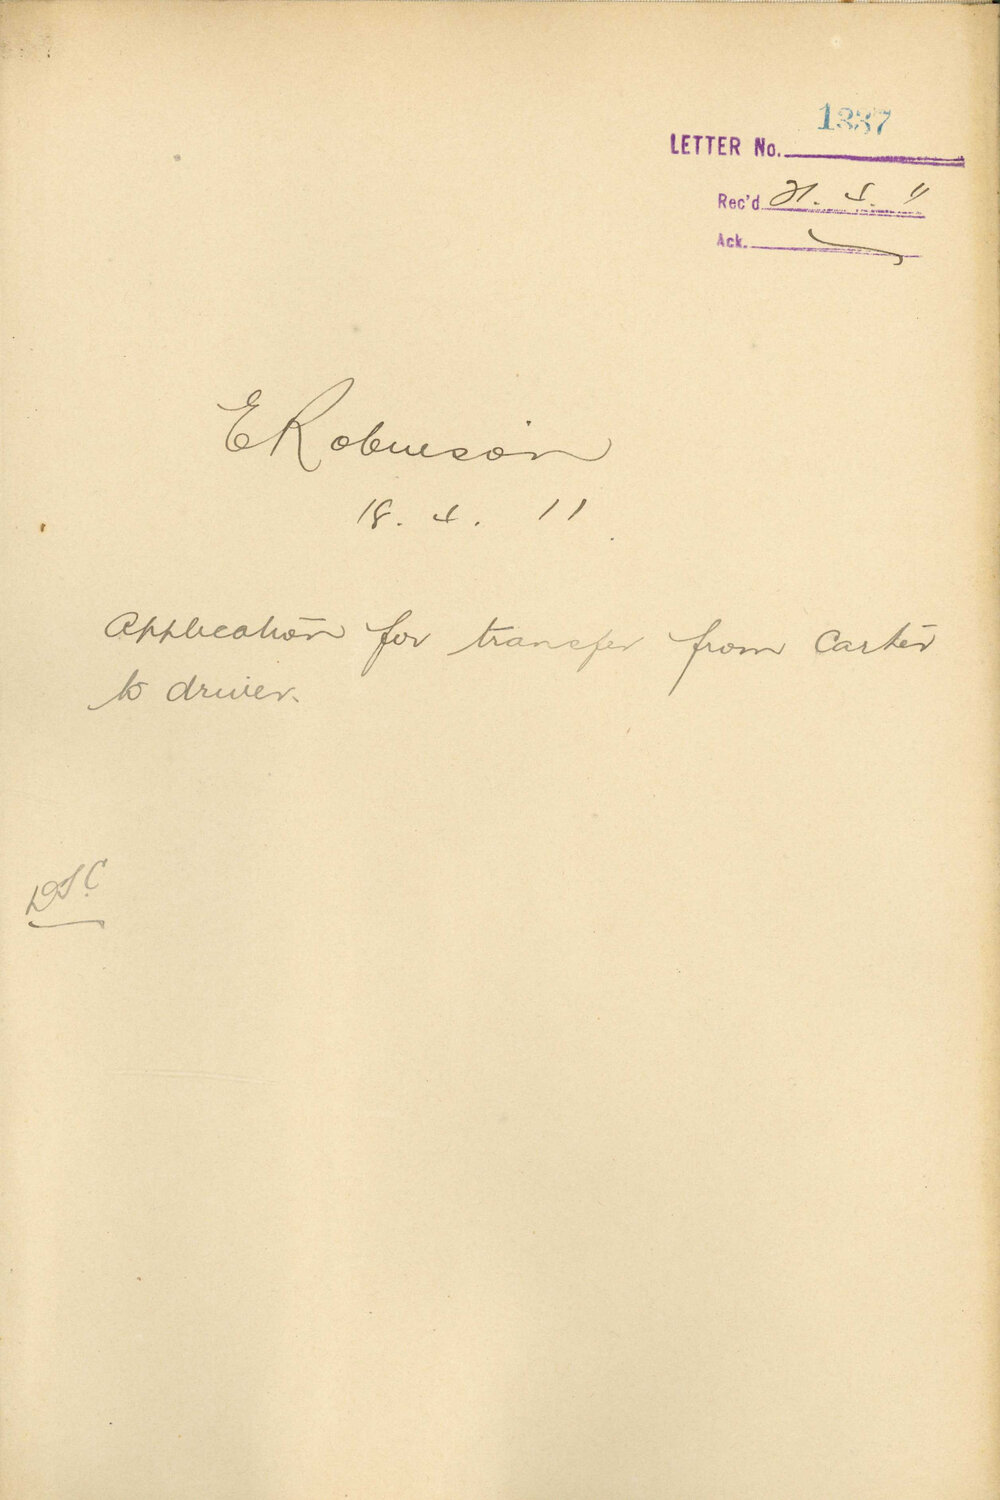 1337
LETTER No.
Rec'd 21. 4. 11
Ack.
E Robinson
18. 4. 11
Application for transfer from Carter
to driver.